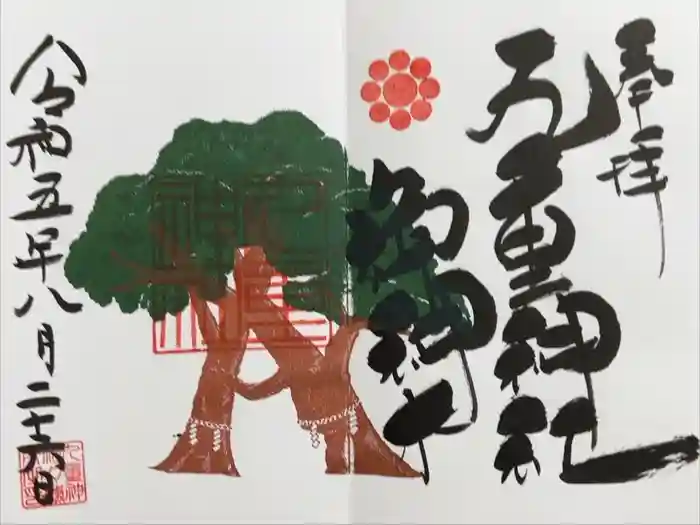 奉拝
九重神社
御神木
令和五年八月二十六日